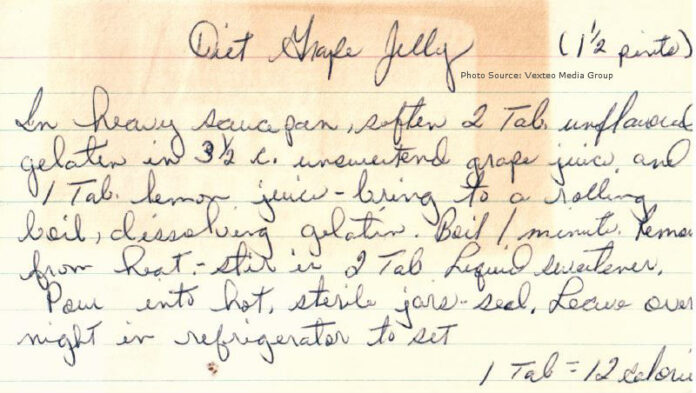 Diet Grape Jelly (1 1/2 pints)
Photo Source: Vexteo Media Group
In heavy saucepan, soften 2 Tab. unflavored
gelatin in 3 1/2 c. unsweetend grape juice and
1 Tab. lemon juice - bring to a rolling
boil, dissolving gelatin. Boil 1 minute. Remov
from heat. - stir in 2 Tab Liquid sweetener.
Pour into hot, sterile jars - seal. Leave over
night in refrigerator to set
1 Tab = 12 calori